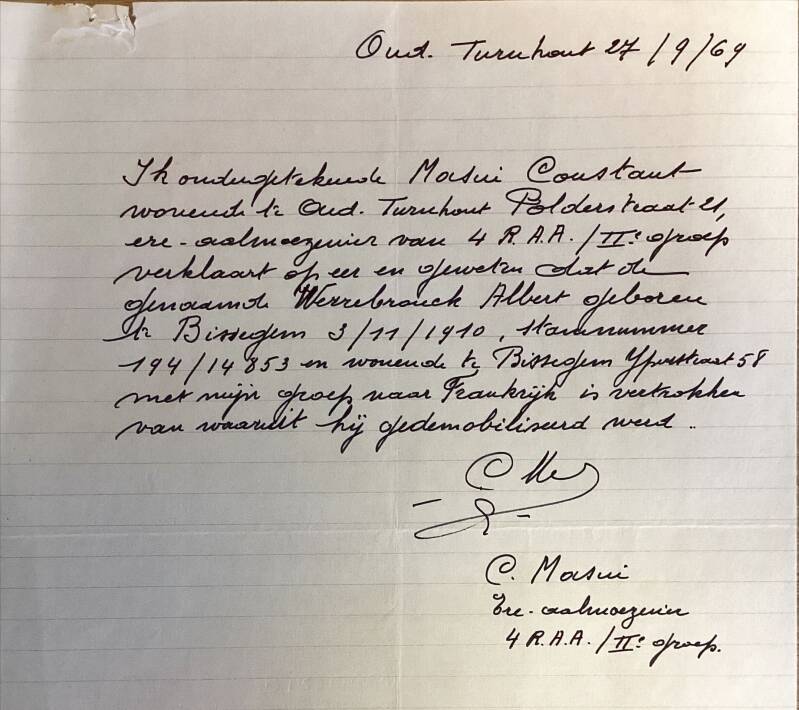 Oud. Turnhout 27/9/69
Ik ondergetekende Masui Constant
wonende te Oud. Turnhout Polderstraat 21,
ere-aalmoezenier van 4 R.A.A./IIe groep
verklaart op eer en geweten dat de
genaamde Werrebrouck Albert geboren
te Bissegem 3/11/1910, stamnummer
194/14853 en wonende te Bissegem Yperstraat 58
met mijn groep naar Frankrijk is vertrokken
van waaruit hij gedemobiliseerd werd..
C. Masui
Ere-aalmoezenier
4 R.A.A./IIe groep.